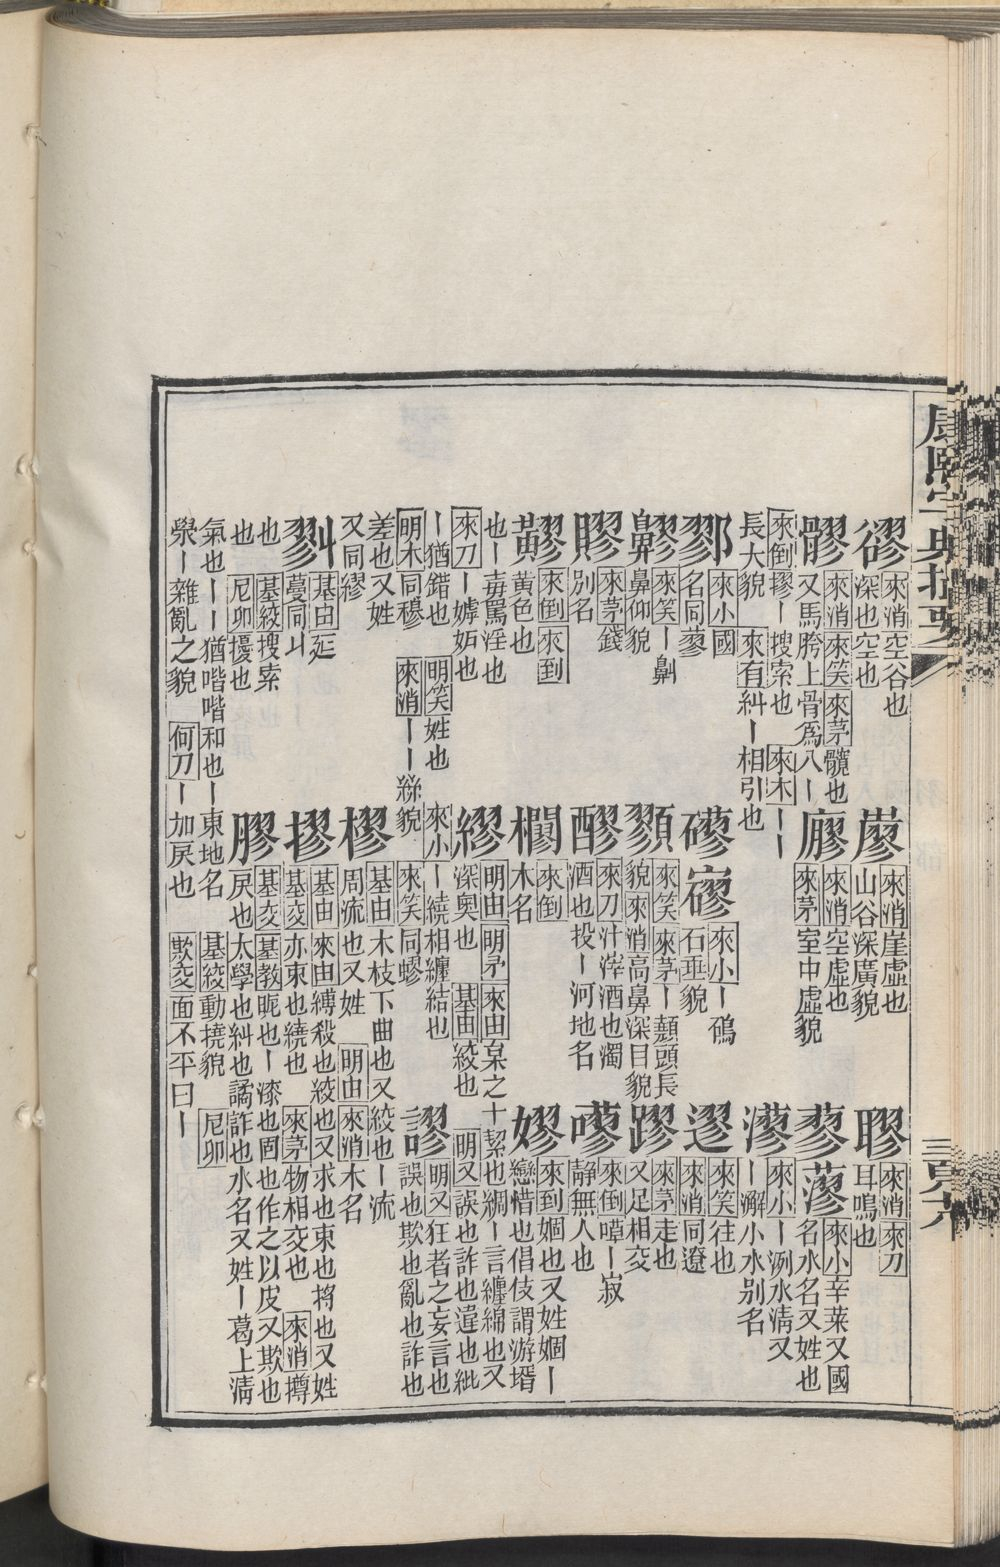 康熙字典撮要
三百六
豂 來消 空谷也 深也空也 𡽪 來消 崖虛也 山谷深廣貌 聊 來消 來刀 耳鳴也
髎 來消 來笑 來茅 髖也 又馬胯上骨爲八｜ 廫 來消 空虛也 來茅 室中虛貌 蓼 蔘 來小 辛菜又國名水名又姓也
來倒 摎｜搜索也 來木｜｜長大貌 來有 糾｜相引也 漻 來小｜㴒水淸又｜澥小水別名
鄝 來小 國名同蓼 磟 寥 來小｜碢 石垂貌 遼 來笑 往也 來消 同遼
鼻翏 來笑｜鼽 鼻仰貌 顟 來笑 來茅｜顤頭長貌 來消 高鼻深目貌 蹘 來茅 走也 又足相交
賿 來茅 錢別名 醪 來刀 汁滓酒也濁酒也投｜河地名 嘐 來倒 嘑｜寂靜無人也
黃翏 來倒 來到 黃色也 橺 來倒 木名 嫪 來到 婟也又姓婟｜戀惜也倡伎謂游壻也｜毐罵淫也
來刀｜嫭妬也 繆 明由 明矛 來由 枲之十絜也綢｜言纏綿也又深奧也 基由 絞也 明又 誤也詐也違也紕｜猶錯也 明笑 姓也 來小｜繞相纏結也
明木 同穆 來消｜｜絲貌 來笑 同蟉 謬 明又 狂者之妄言也誤也欺也亂也詐也差也又姓又同繆
樛 基由 木枝下曲也又絞也｜流周流也又姓 明由 來消 木名
㺒 基由 延蔓同丩 摎 基由 來由 縛殺也絞也又求也束也捋也又姓 基交 亦束也繞也 來茅 物相交也 來消 撙也 基絞 搜索也 尼卯 擾也
膠 基交 基教 昵也｜漆也固也作之以皮又欺也戾也太學也糾也譎詐也水名又姓｜葛上淸氣也｜｜猶喈喈和也｜東地名 基絞 動撓貌 尼卯 㬥｜雜亂之貌 何刀｜加戾也 欺交 面不平曰｜